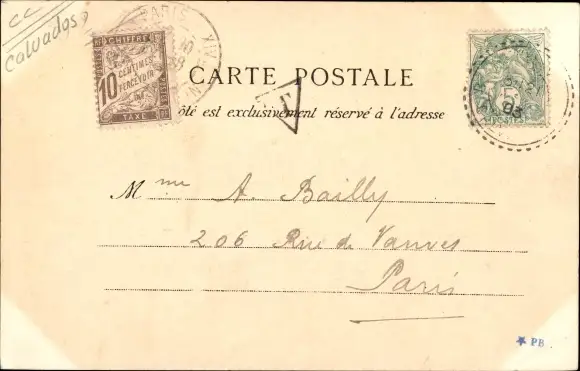 CC
Calvados
PARIS XIV
CHIFFRE
10 CENTIMES
A PERCEVOIR
TAXE
CARTE POSTALE
T
ôté est exclusivement réservé à l'adresse
5c
03
Mme A. Bailly
206 Rue de Vanves
Paris
★ PB